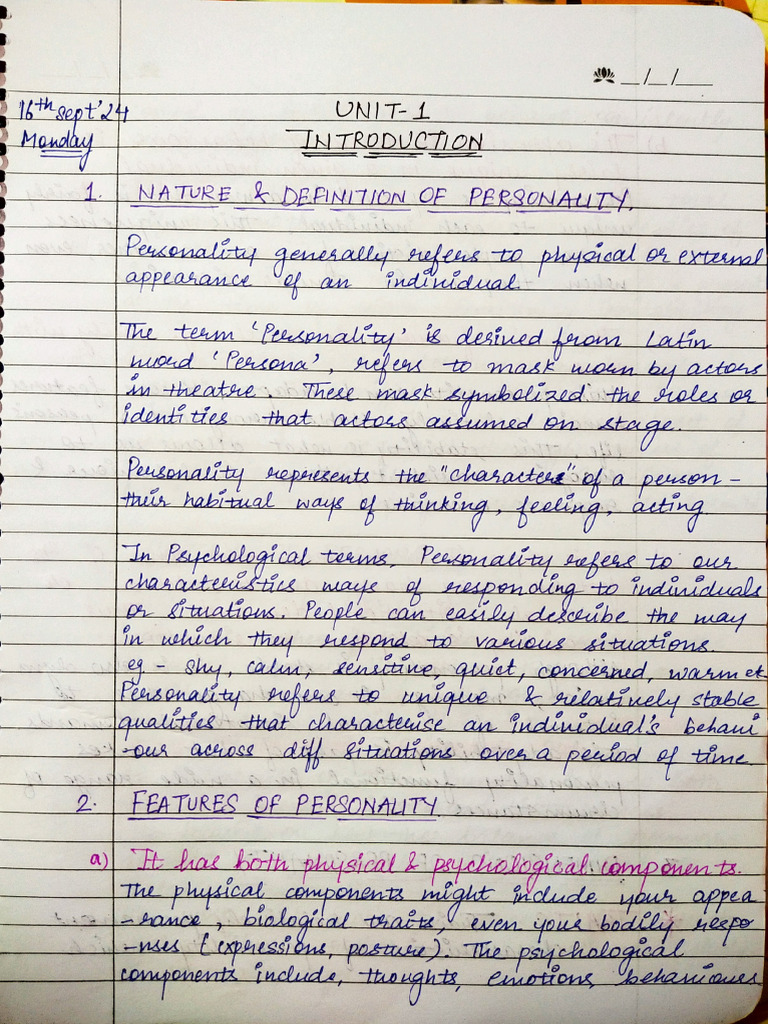 _/_/__
16th Sept'24
Monday
UNIT-1
INTRODUCTION
1. NATURE & DEFINITION OF PERSONALITY.
Personality generally refers to physical or external
appearance of an individual.
The term 'Personality' is derived from Latin
word 'Persona', refers to mask worn by actors
in theatre. These mask symbolized the roles or
identities that actors assumed on stage.
Personality represents the "character" of a person -
their habitual ways of thinking, feeling, acting.
In Psychological terms, Personality refers to our
characteristics ways of responding to individuals
or situations. People can easily describe the way
in which they respond to various situations.
eg - shy, calm, sensitive, quiet, concerned, warm et.
Personality refers to unique & relatively stable
qualities that characterise an individual's behavi
-our across diff situations over a period of time.
2. FEATURES OF PERSONALITY
a) It has both physical & psychological components.
The physical components might include your appea
-rance, biological traits, even your bodily respo
-nses (expressions, posture). The psychological
components include, thoughts, emotions, behaviours.